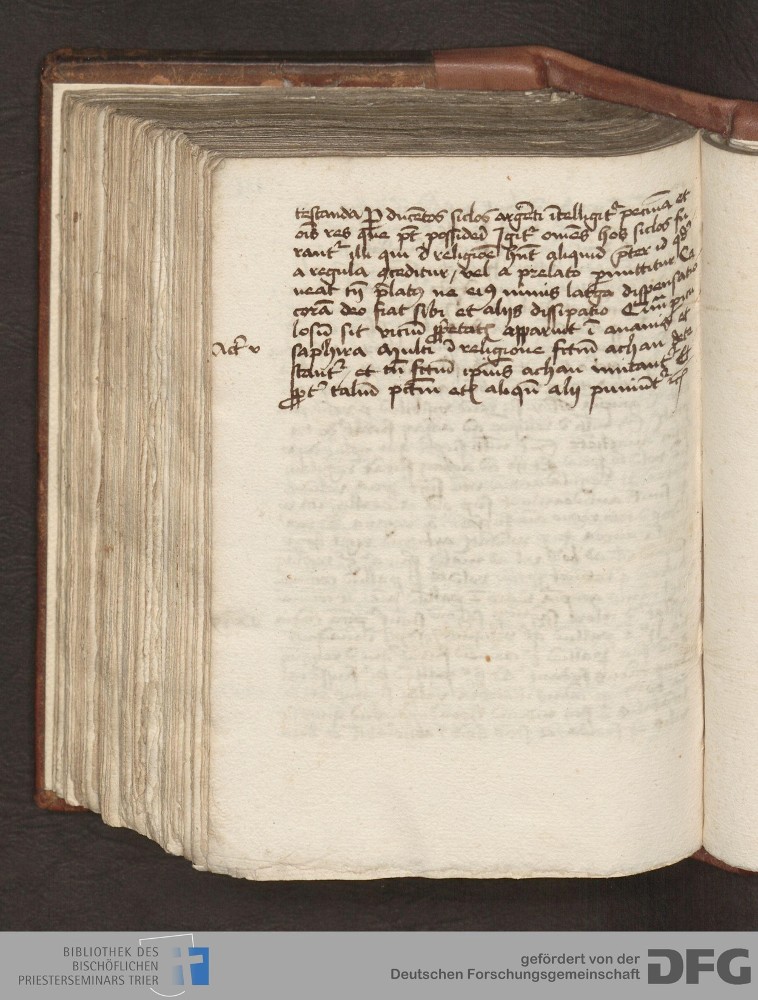 testanda P ducentos siclos argēti ītelligit᷑ pecūia et
oīs res que pōt possideri Igit᷑ omēs hos siclos fu
rant᷑ illi qui ī religiōe hn̄t aliquid p̄ter id qd̓
a regula ꝯceditur / vel a prelato permittitur Ca
ueat tn̄ p̄latꝯ ne eiꝯ nimis larga dispensatio
corā deo fiat sibi et aliis dissipatio Qm̄ pericu
losū sit vitiū ꝓprietatꝭ apparuit ī anania et
Act᷑ v
saphira Multi ī religione fctm̄ achan dete
stant᷑ et tn̄ fctm̄ ipiꝰ achan imitant᷑ Et
ꝓpt᷑ taliū pctm̄ etꝭ aliqn̄ alii puniūt᷑ rc̄
BIBLIOTHEK DES
BISCHÖFLICHEN
PRIESTERSEMINARS TRIER
gefördert von der
Deutschen Forschungsgemeinschaft
DFG